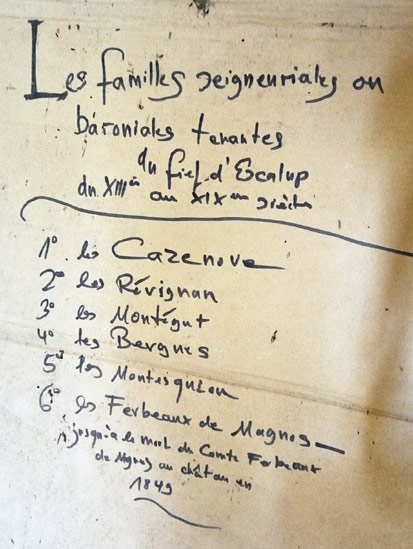 Les familles seigneuriales ou
baroniales tenantes
du fief d'Escalup
du XIIIè au XIXème siècles
1° les Cazenove
2° les Révignan
3° les Montégut
4° les Bergues
5° les Montesquiou
6° les Ferbeaux de Magnos
jusqu'à la mort du Comte Ferbeaux
de Magnos au château en
1849